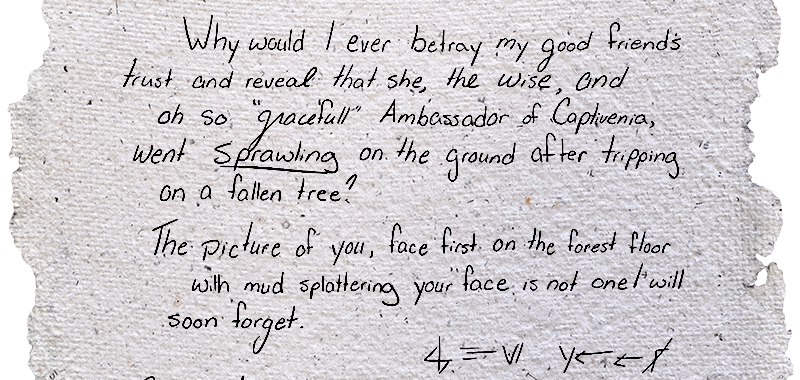 Why would I ever betray my good friend's
trust and reveal that she, the wise, and
oh so "gracefull" Ambassador of Captivenia,
went sprawling on the ground after tripping
on a fallen tree?
The picture of you, face first on the forest floor
with mud splattering your face is not one I will
soon forget.